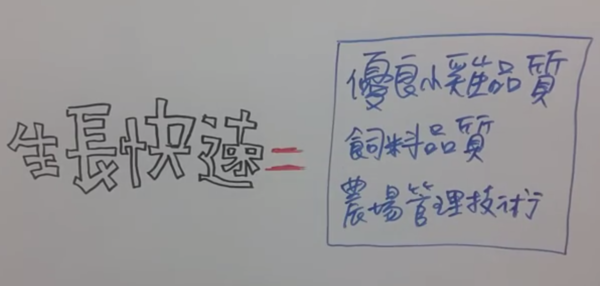 生長快速=
優良小雞品質
飼料品質
農場管理技術